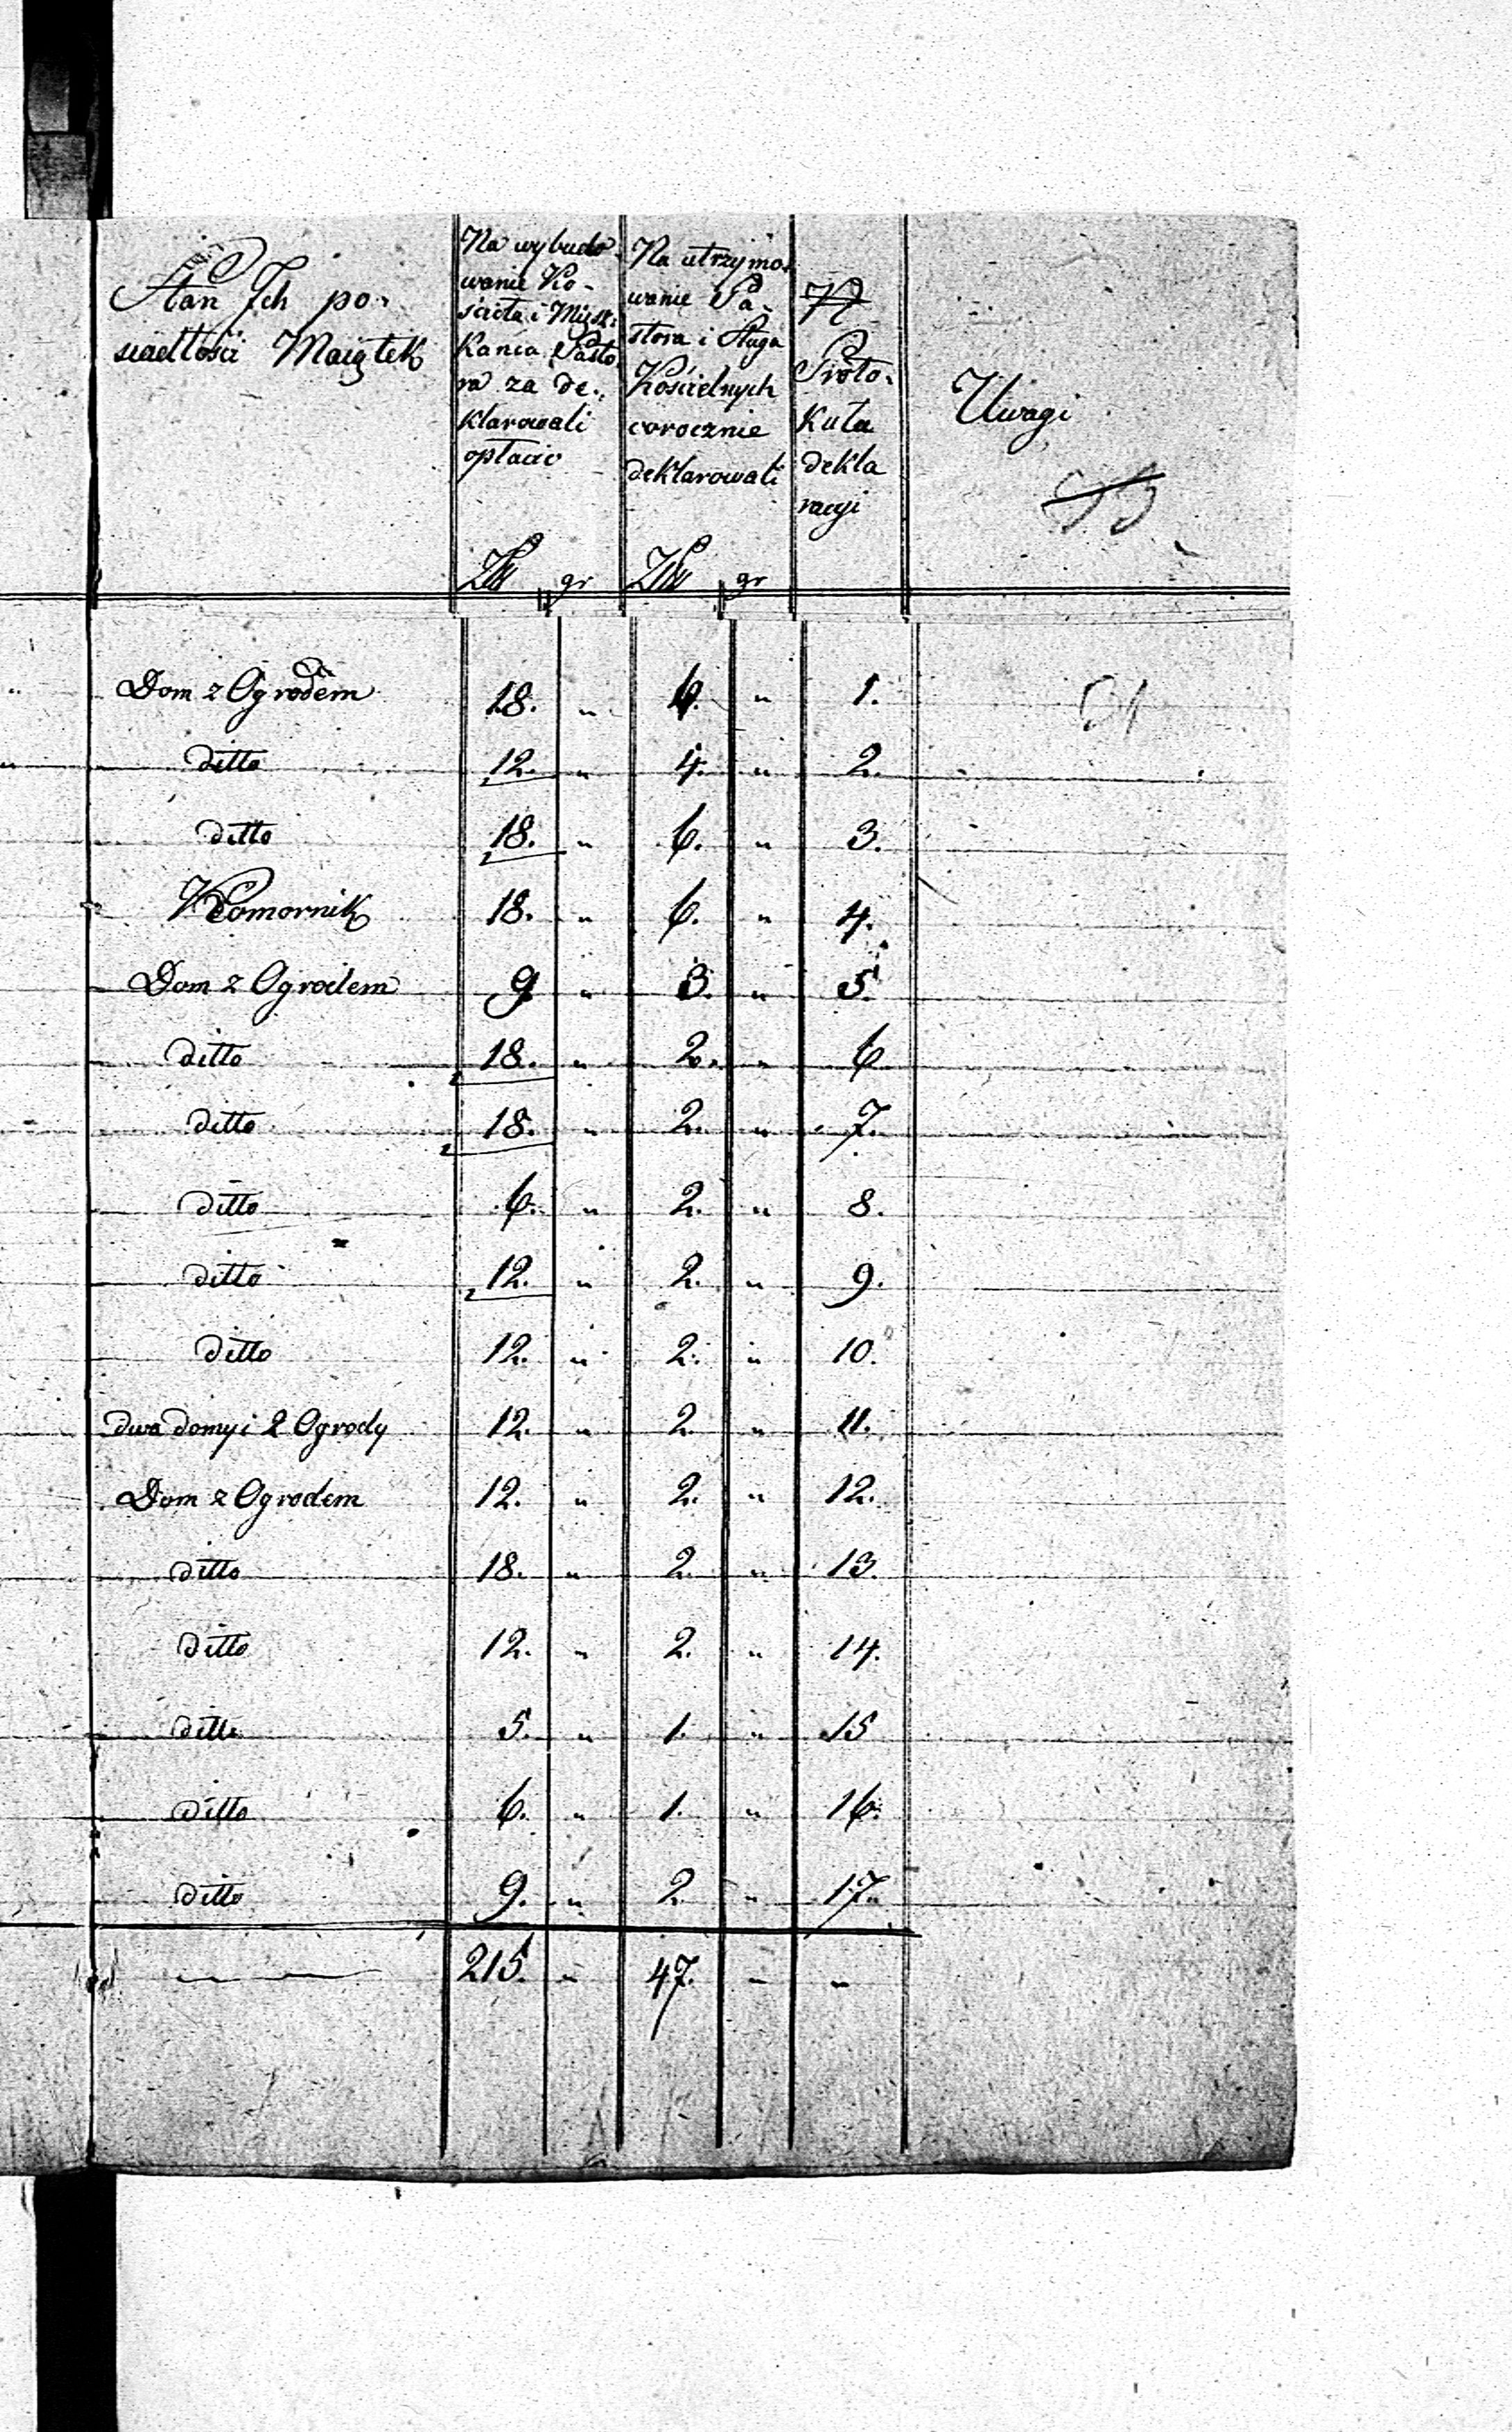 Stan Jch po-
siadłości Maiątek
Na wybudo-
wanie Ko-
ścioła i Miesz-
kania Pasto-
ra za de-
klarowali
opłacić
Złł gr
Na utrzymo-
wanie Pa-
stora i Sługa
Kościelnych
corocznie
deklarowali
Złł gr
N
Proto-
kuła
dekla
racyi
Uwagi
Dom z Ogrodem 18. " 6. " 1. 51
ditto 12. " 4. " 2.
ditto 18. " 6. " 3.
Komornik 18. " 6. " 4.
Dom z Ogrodem 9 " 3. " 5.
ditto 18. " 2. " 6
ditto 18. " 2. " 7.
ditto 6. " 2. " 8.
ditto 12. " 2. " 9.
ditto 12. " 2. " 10.
dwa domy i 2 Ogrody 12. " 2. " 11.
Dom z Ogrodem 12. " 2. " 12.
ditto 18. " 2. " 13.
ditto 12. " 2. " 14.
ditto 5. " 1. " 15
ditto 6. " 1. " 16.
ditto 9. " 2 " 17.
215. " 47. " "